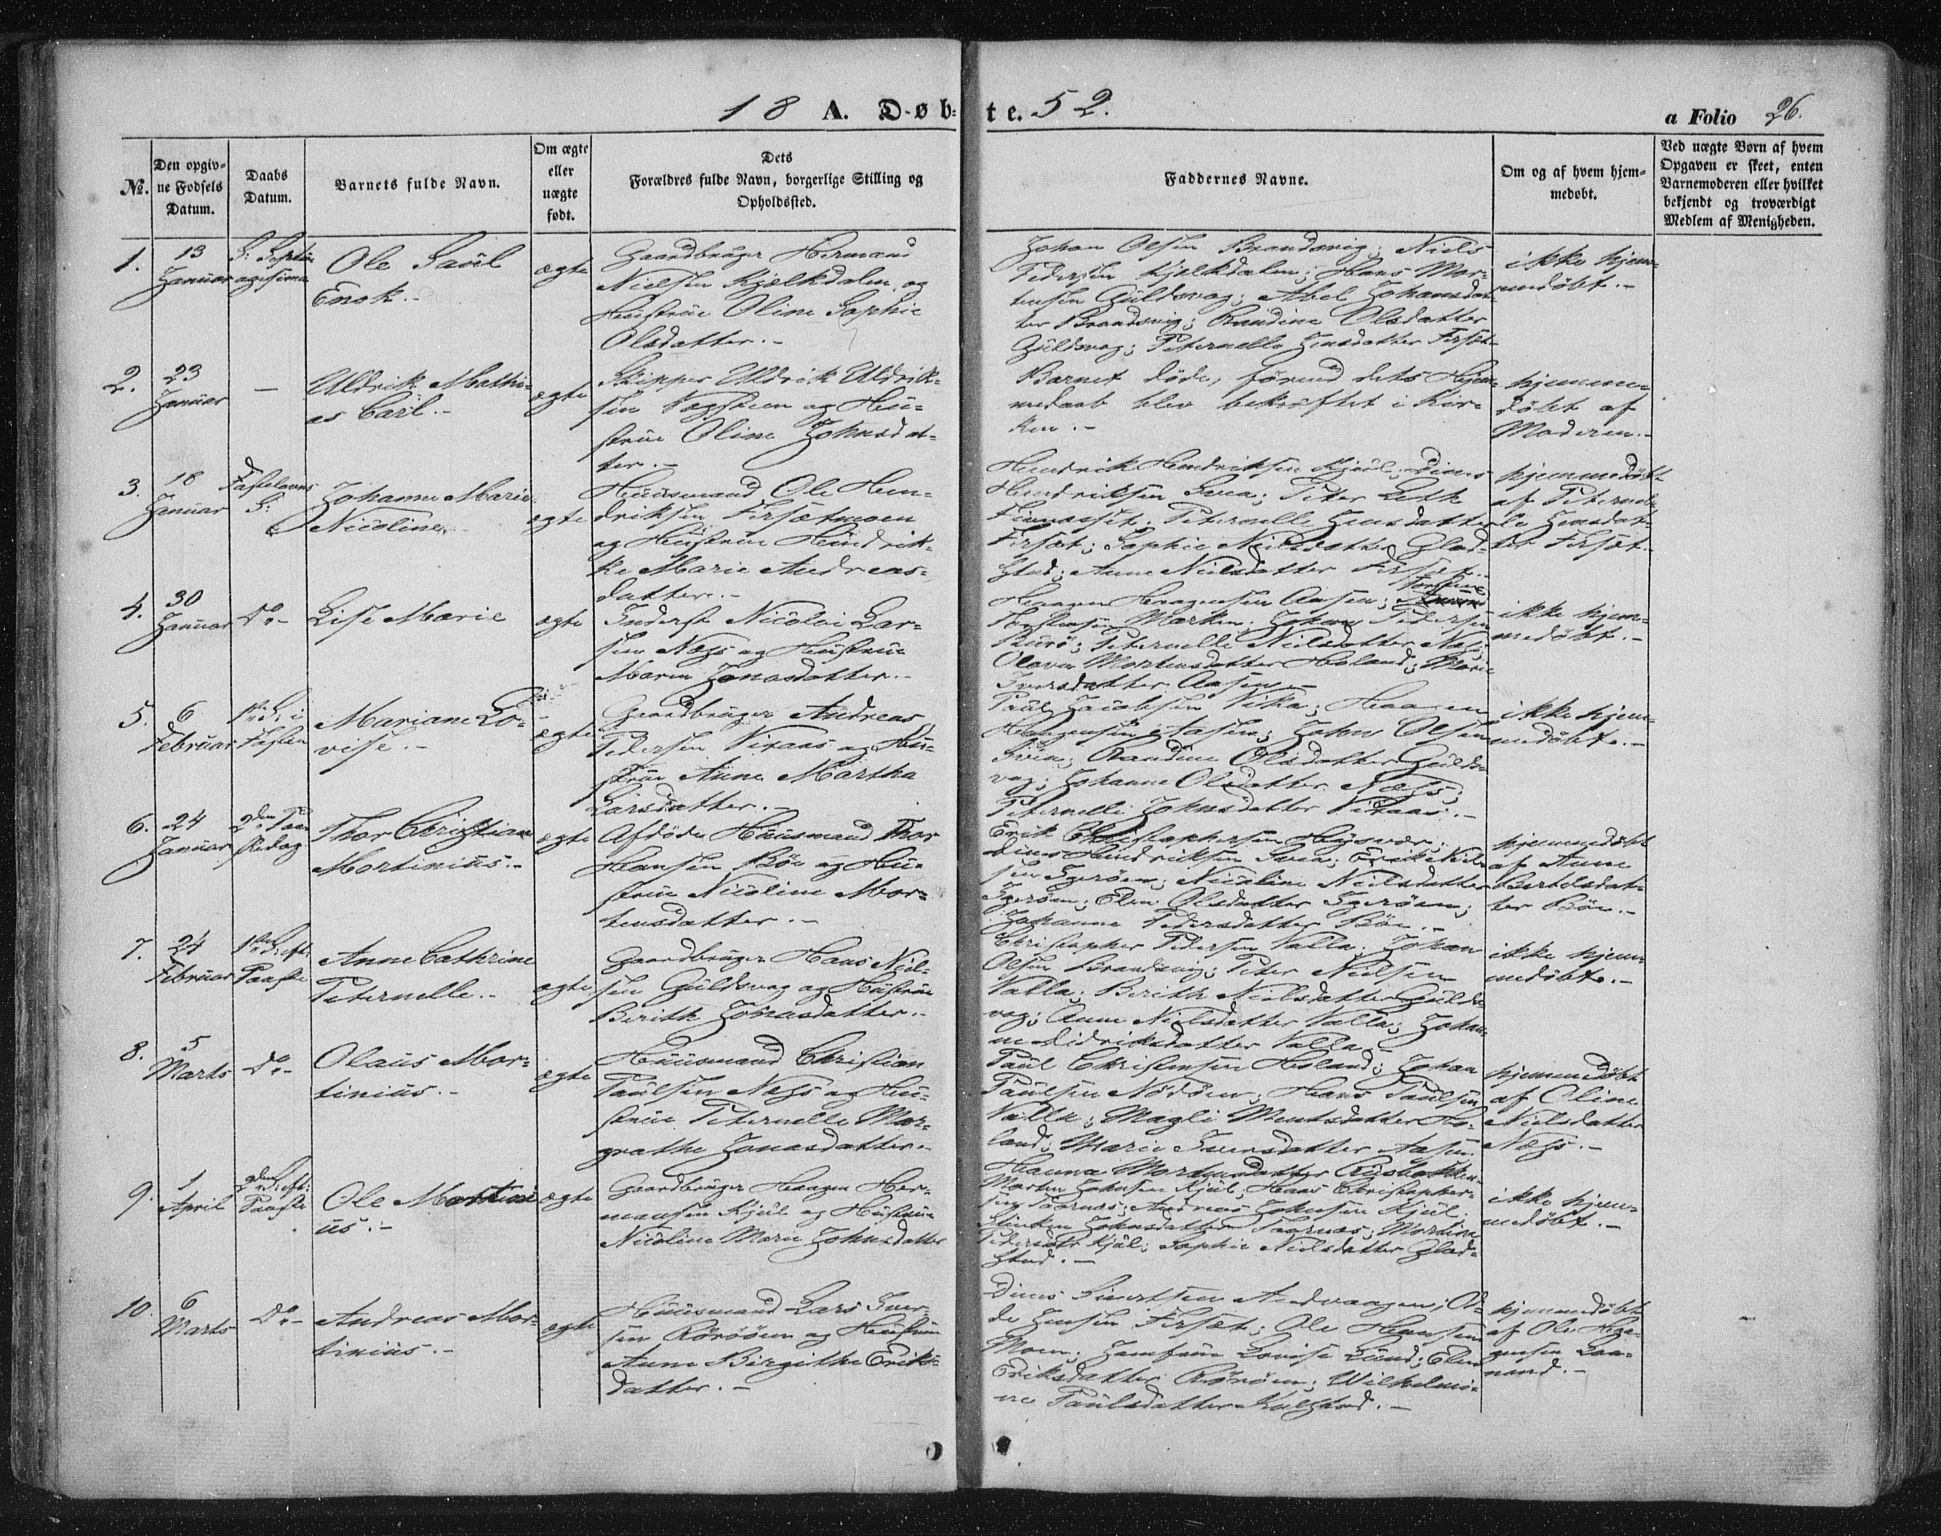 18 A. Døb-te. 52.
a Folio 26.
No.
Den opgiv-
ne Fødsels
Datum.
Daabs
Datum.
Barnets fulde Navn.
Om ægte
eller
uægte
født.
Dets
Forældres fulde Navn, borgerlige Stilling og
Opholdssted.
Faddernes Navne.
Om og af hvem hjem-
medøbt.
Ved uægte Børn af hvem
Opgaven er skeet, enten
Barnemoderen eller hvilket
bekjendt og troværdigt
Medlem af Menigheden.
1.
13
Januar
S. Septua-
agesima
Ole Saul
Enok.-
ægte
Gaardbruger Hermand
Nielsen Kjelkdalen og
Hustrue Oline Sophie
Olsdatter.-
Johan Olsen Brandsvig; Niels
Pedersen Kjelkdalen; Hans Mor-
tensen Guldsvag; Abel Johansdat-
ter Brandsvig; Randine Olsdatter
Guldsvag; Peternelle Jensdatter Forset-
ikke hjem-
medøbt.-
2.
23
Januar
-
Uldrik Mathi-
as Carl.-
ægte
Skipper Uldrik Uldrik-
sen Vogsteen og Hu-
strue Oline Johnsdat-
ter.-
Barnet døde, førend dets Hjem-
medaab blev bekræftet i Kir-
ken.-
hjemme-
døbt af
Moderen.-
3.
18
Januar
Fastelavns
S.
Johanne Marie
Nicoline.
ægte
Huusmand Ole Hen-
driksen Forsetmoen
og Hustrue Hendrik-
ke Marie Andreas-
datter.-
Hendrik Hendriksen Kjul; Dines
Hendriksen Svea; Peter Leth
Finnesset; Peternelle Jensdatter
Forset; Sophie Nielsdatter Glad-
stad; Anne Nielsdatter Forset.-
hjemmedøbt
af Peternel-
le Jensdat-
ter Forset.-
4.
30
Januar
Do-
Lise Marie
ægte
Inderst Nicolai Lar-
sen Næss og Hustrue
Maren Jonasdatter.-
Haagen Haagensen Aasen;
Marken; Johan Pedersen
Burø; Peternelle Nielsdatter Næss;
Olava Mortensdatter Høland; Marie
Iversdatter Aasen.-
ikke hjem-
medøbt.-
5.
6
Februar
1ste S. i
Fasten
Mariane Lo-
vise.-
ægte
Gaardbruger Andreas
Pedersen Vixaas og Hu-
strue Anne Martha
Larsdatter.-
Paul Jacobsen Vika; Haagen
Haagensen Aasen; Johan Olsen
Svea; Randine Olsdatter Gulds-
vag; Johanne Olsdatter Næss;
Peternelle Johnsdatter Vixaas.-
ikke hjem-
medøbt.-
6.
24
Januar
2den Paa-
skedag
Thor Christian
Mortinius.-
ægte
Afdøde Huusmand Thor
Hansen Böe og Hu-
strue Nicoline Mor-
tensdatter.-
Erik Christophersen Høysvær;
Dines Hendriksen Svea; Erik Niel-
sen Igerøen; Nicoline Nielsdatter
Igerøen; Elen Olsdatter Igerøen;
Johanna Pedersdatter Böe.-
hjemmedøbt
af Anne
Bertelsdat-
ter Böe.-
7.
24
Februar
1ste S. eft.
Paaske
Anne Cathrine
Peternelle.-
ægte
Gaardbruger Hans Niel-
sen Guldsvag og Hustrue
Berith Johnasdatter.-
Christopher Pedersen Valla; Johan
Olsen Brandsvig; Peter Nielsen
Valla; Berith Nielsdatter Gulds-
vag; Anne Nielsdatter Valla; Johan-
ne Didriksdatter Valla.-
ikke hjem-
medøbt.-
8.
5
Marts
Do-
Olaus Mor-
tinius.-
ægte
Huusmand Christian
Paulsen Næss og Hu-
strue Peternelle Mar-
grethe Jonasdatter.-
Paul Christensen Høland; Johan
Paulsen Nordöen; Hans Paulsen
Valla; Magli Mentsdatter Hö-
land; Marie Iversdatter Aasen
Hanna Mortensdatter
hjemmedøbt
af Oline
Nielsdatter
Næss.-
9.
1
April
2den S. eft.
Paaske
Ole Mortini
us.-
ægte
Gaardbruger Haagen Her-
mansen Kjul og Hustrue
Nicoline Marie Johnsdatter
Morten Johnsen Kjul; Hans Christopher-
sen Taarnes; Andreas Johnsen Kjul
Johnsdatter Taarnæs; Mortine
Pedersdtr Kjul; Sophie Nielsdatter Glad-
stad.-
ikke hjem-
medøbt.-
10.
6
Marts
Do-
Andreas Mor-
tinius.-
ægte
Huusmand Lars Iver-
sen Rörøöen og Hustrue
Anne Birgithe Eriks-
datter.-
Dines Sivertsen Andvaagen; Od-
de Jensen Forset; Ole Hansen
Moen; Jomfrue Lovise Lund; Elen
Eriksdatter Rörøen; Wilhelmi-
ne Paulsdatter Kulstad.-
hjemmedøbt
af Ole Haa-
gensen Laa-
nand.-